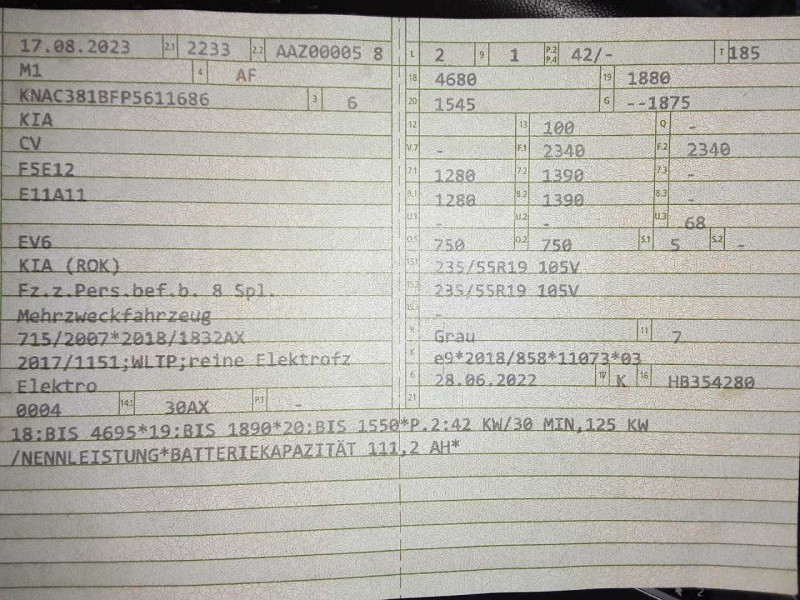 17.08.2023 2.1 2233 2.2 AAZ00005 8
M1 4 AF
KNAC381BFP5611686 3 6
KIA
CV
F5E12
E11A11
EV6
KIA (ROK)
Fz.z.Pers.bef.b. 8 Spl.
Mehrzweckfahrzeug
715/2007*2018/1832AX
2017/1151;WLTP;reine Elektrofz
Elektro
0004 14.1 30AX P.1 -
L 2 9 1 P.2 P.4 42/- T 185
18 4680 19 1880
20 1545 G --1875
12 13 100 Q -
V.7 - F.1 2340 F.2 2340
7.1 1280 7.2 1390 7.3 -
8.1 1280 8.2 1390 8.3 -
U.1 - U.2 - U.3 68
O.1 750 O.2 750 S.1 5 S.2 -
15.1 235/55R19 105V
15.2 235/55R19 105V
15.3 -
R Grau 11 7
K e9*2018/858*11073*03
6 28.06.2022 17 K 16 HB354280
21
18:BIS 4695*19:BIS 1890*20:BIS 1550*P.2:42 KW/30 MIN,125 KW
/NENNLEISTUNG*BATTERIEKAPAZITÄT 111,2 AH*